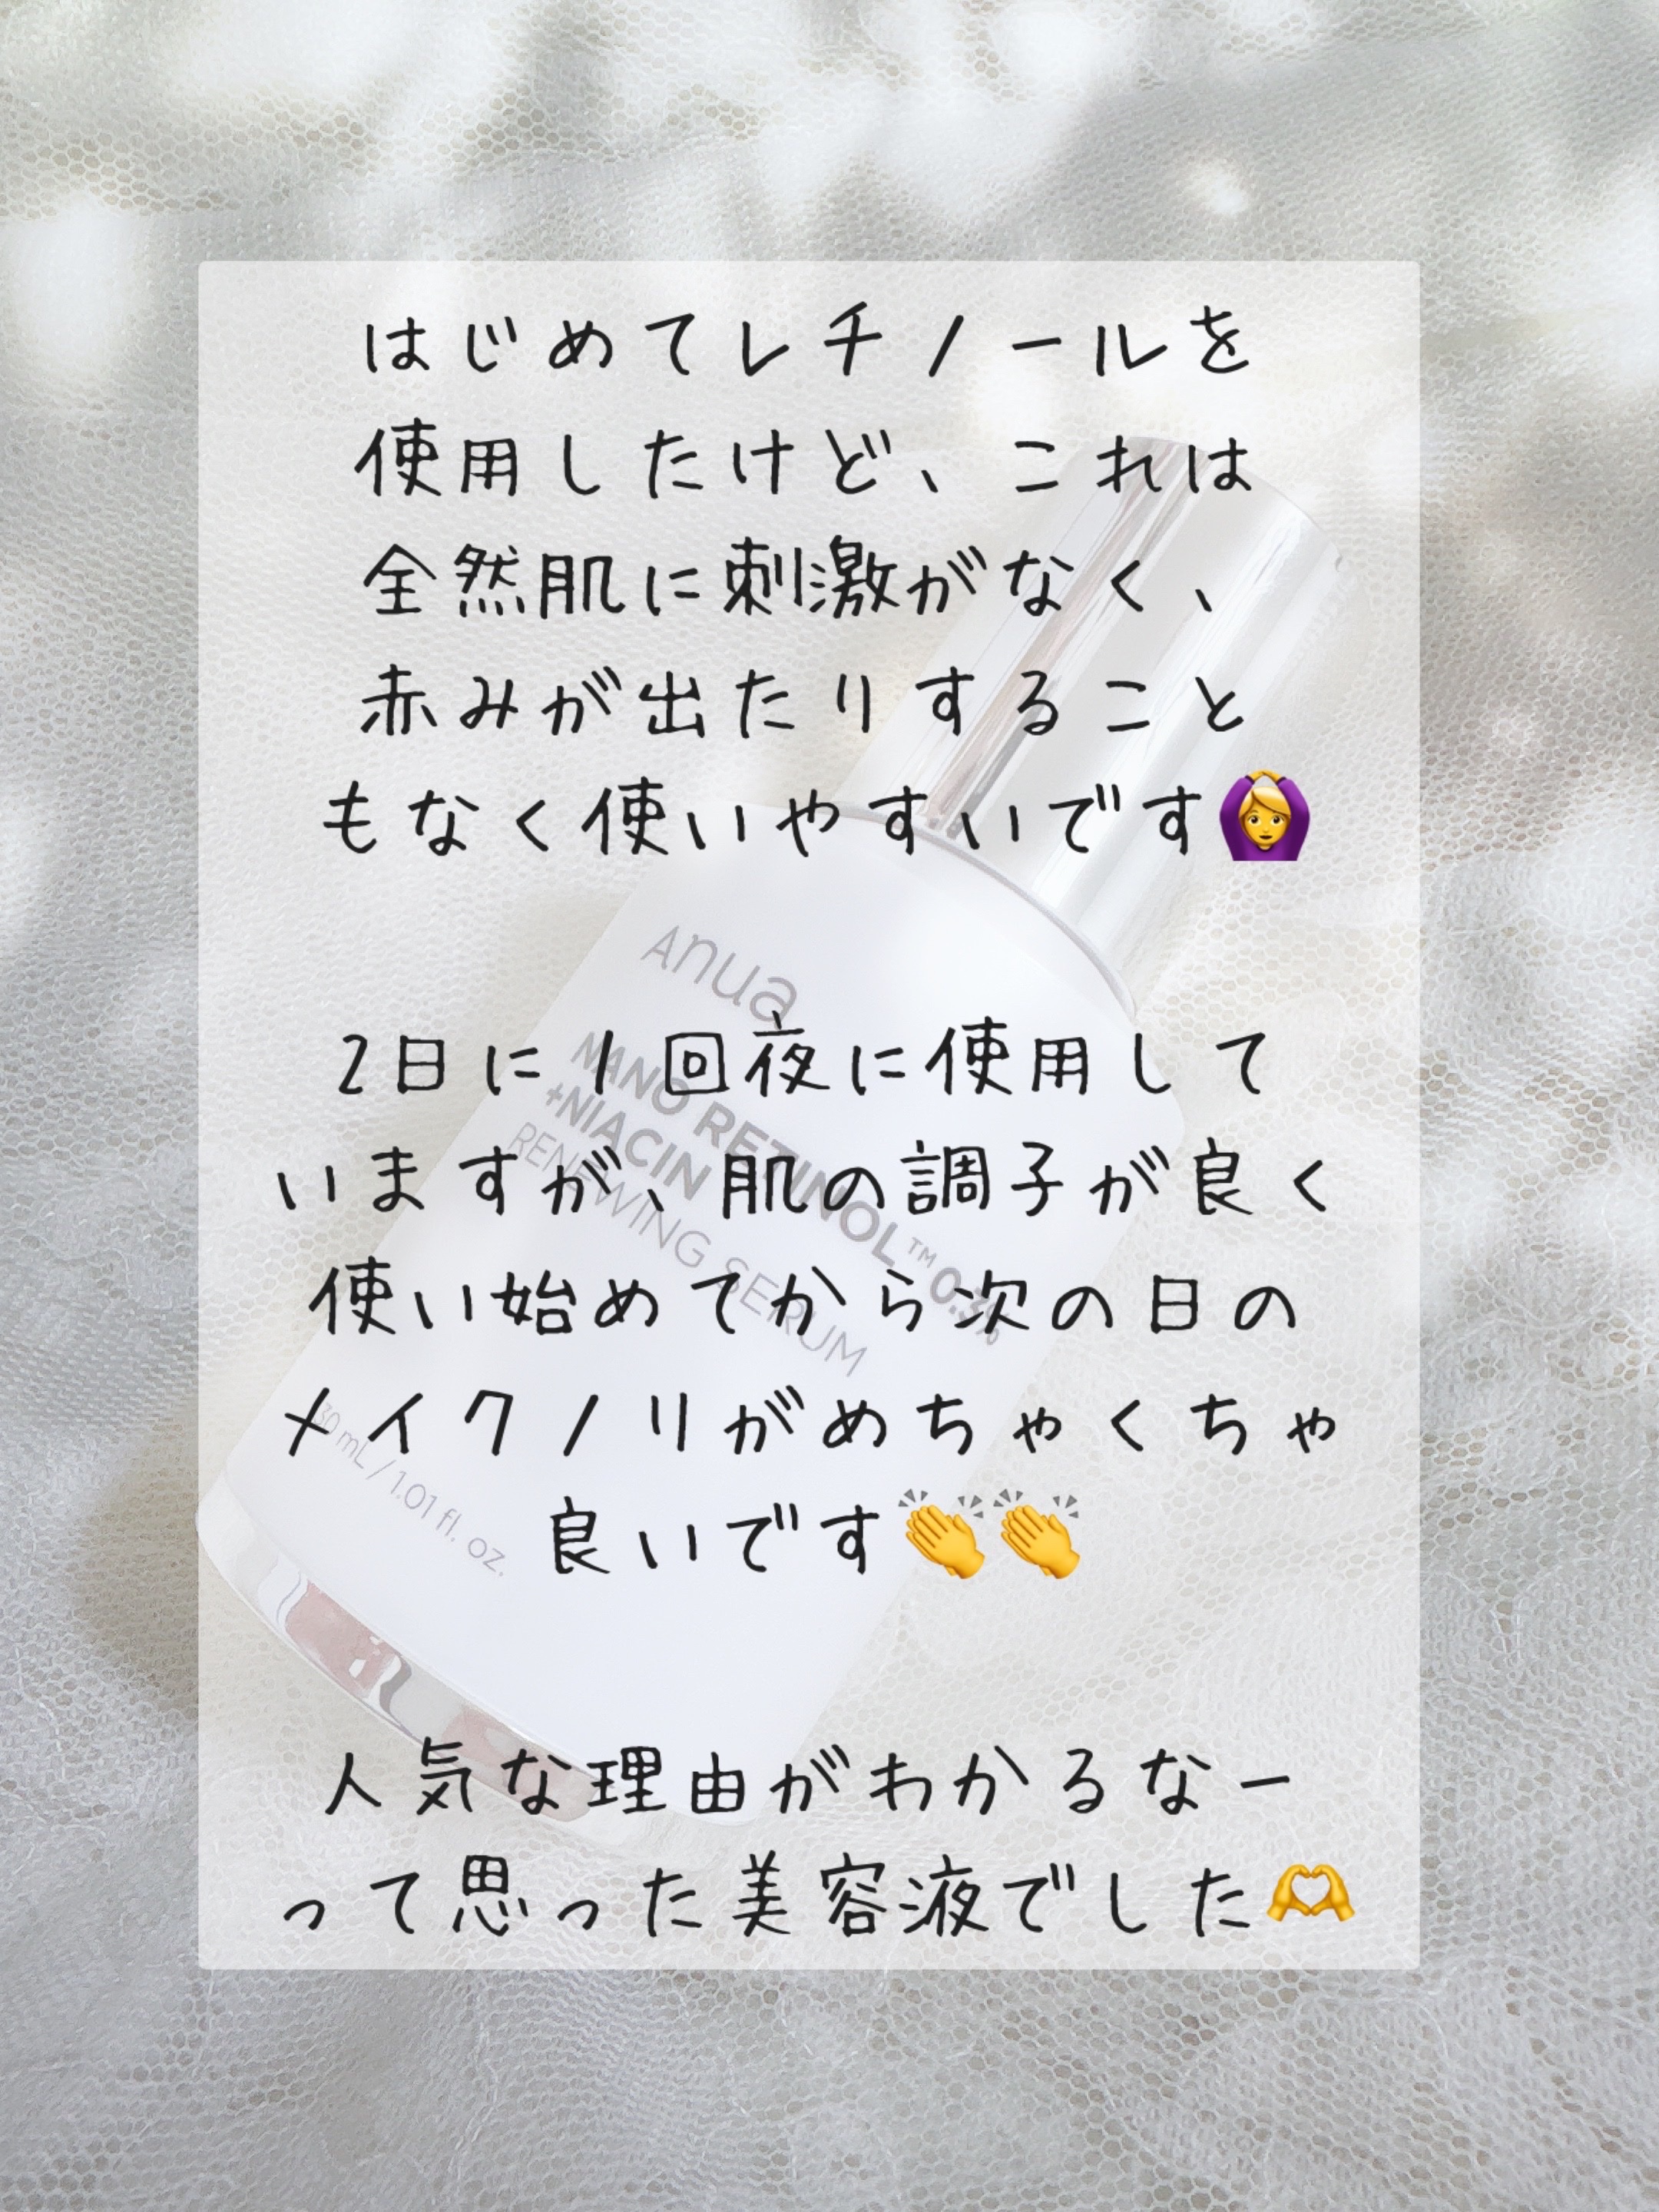 はじめてレチノールを
使用したけど、これは
全然肌に刺激がなく、
赤みが出たりすること
もなく使いやすいです🙆‍♀️
Anua
2日に1回夜に使用して
NANO RETINOL™ 0.3%
+NIACIN
RENEWING SERUM
いますが、肌の調子が良く
使い始めてから次の日の
メイクノリがめちゃくちゃ
30 mL / 1.01 fl. oz.
良いです👏👏
人気な理由がわかるなー
って思った美容液でした🫶